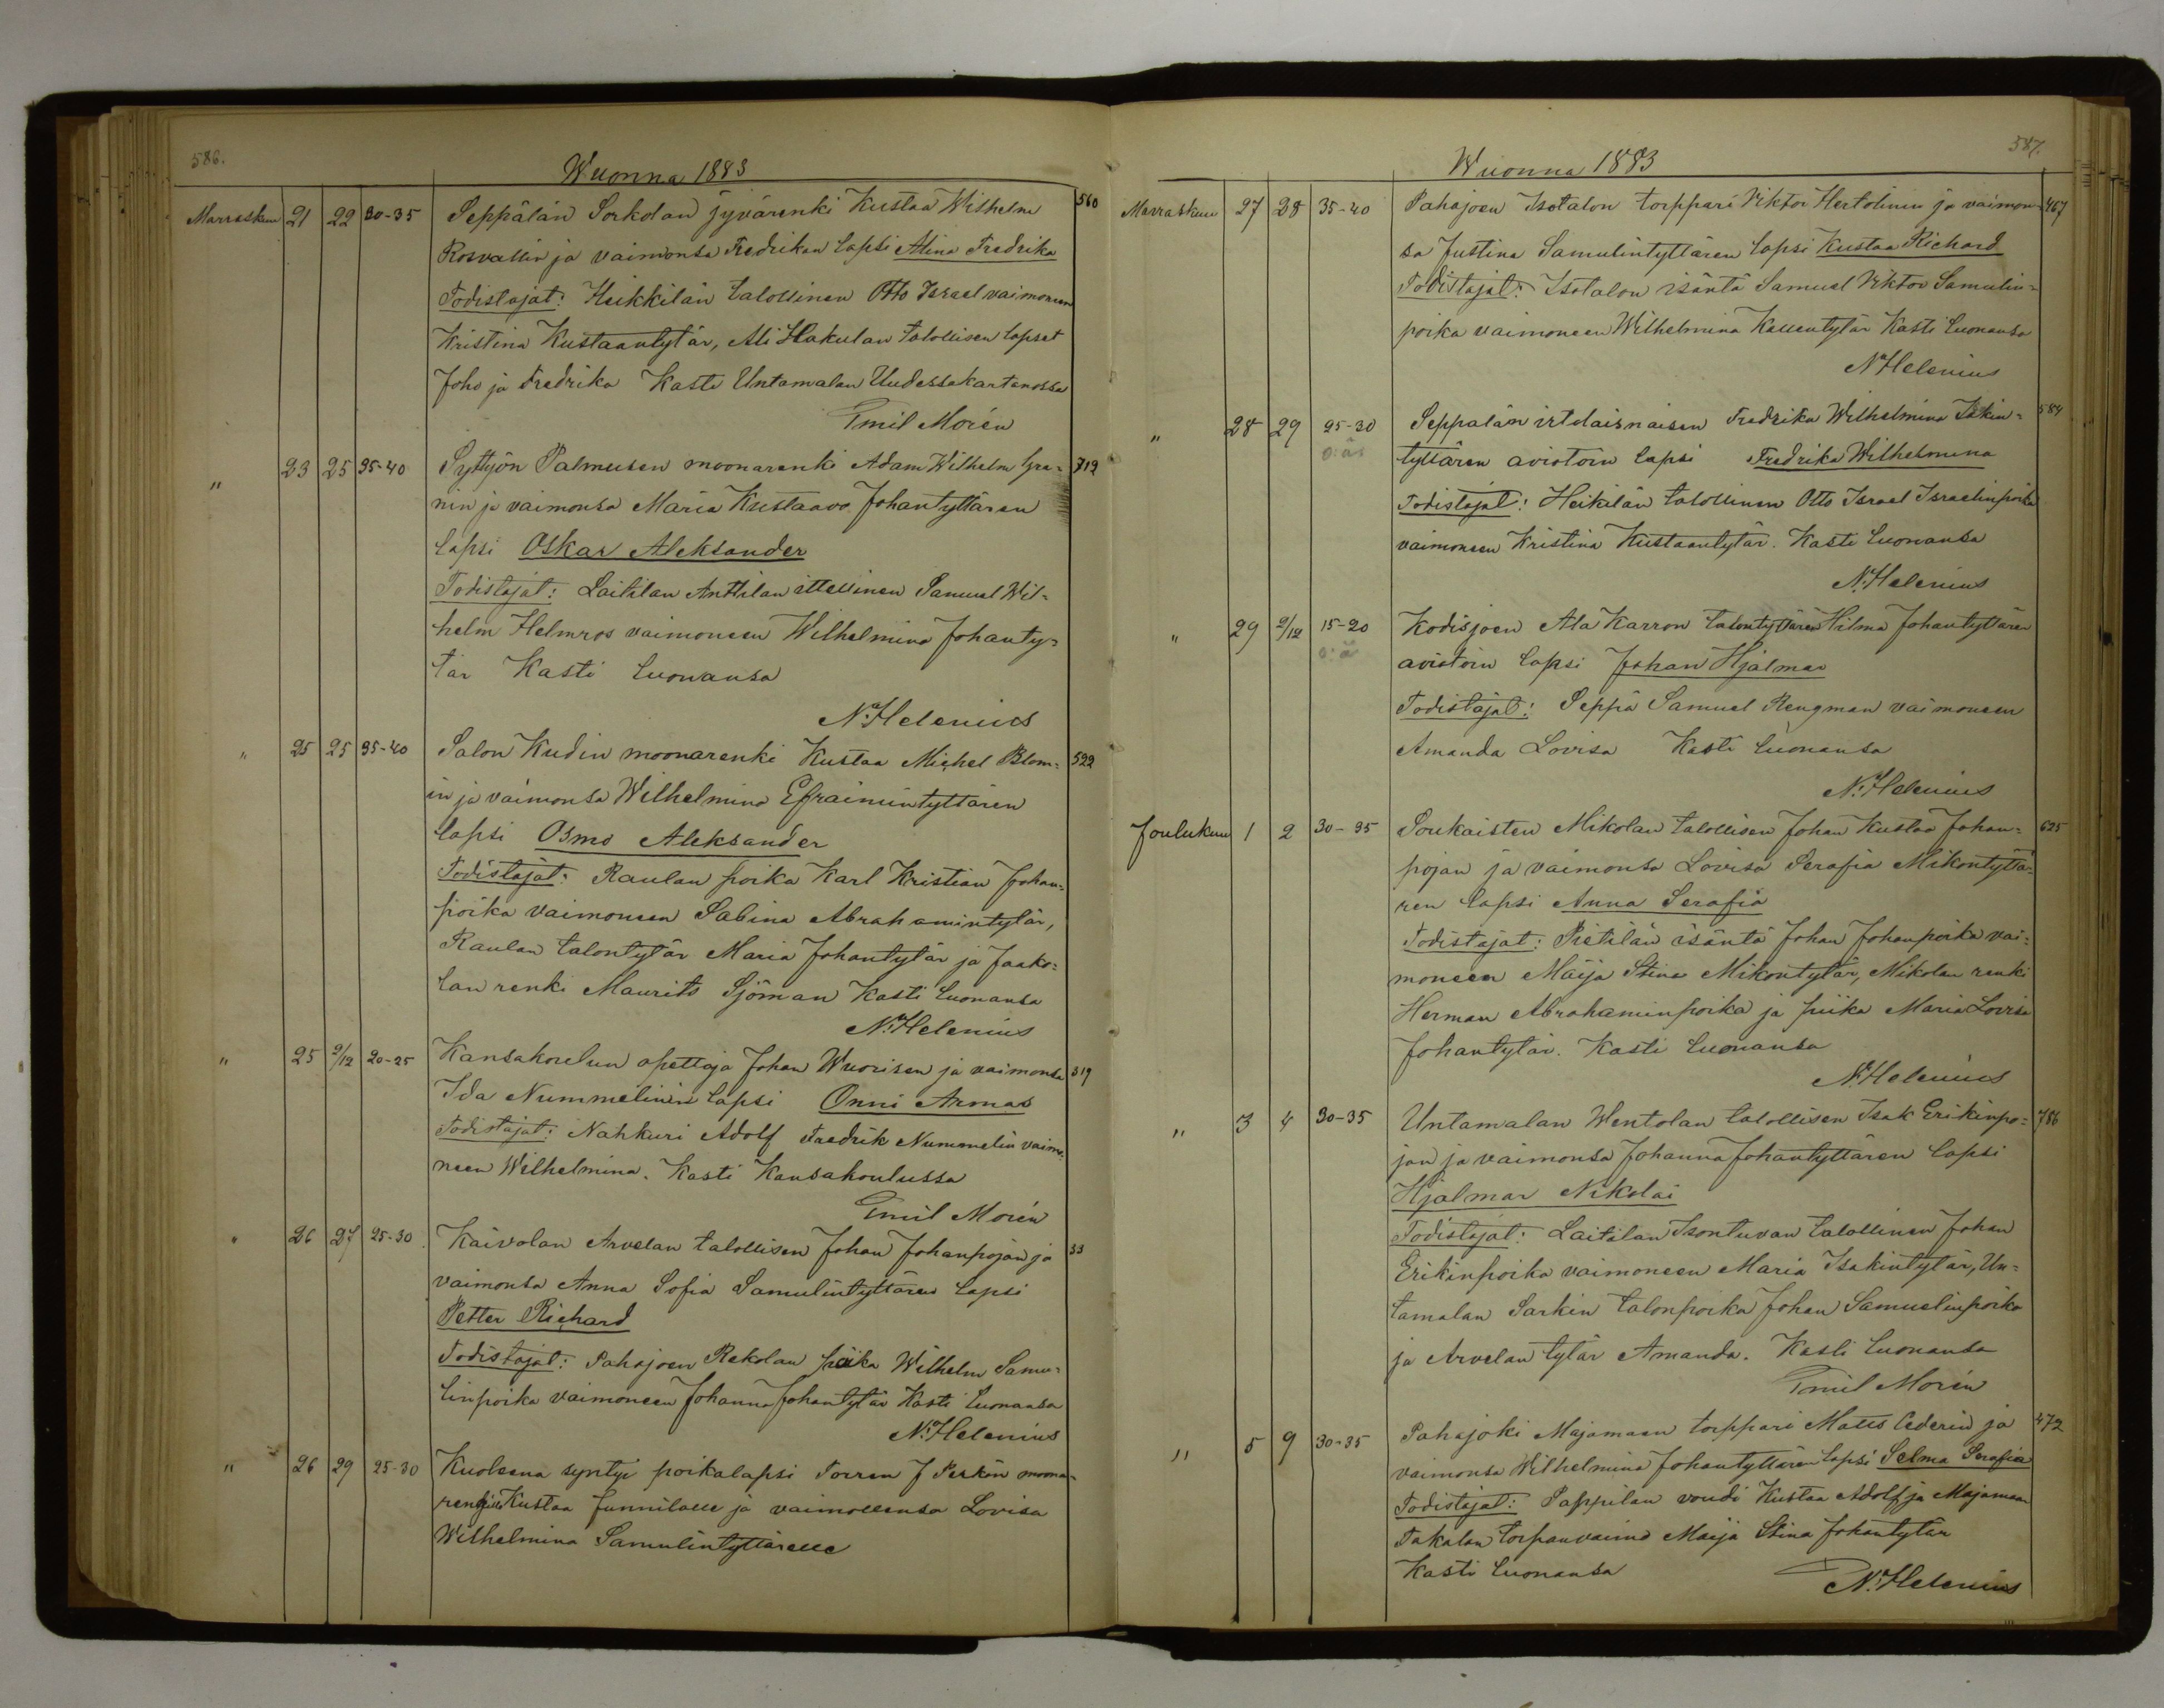 586.
Wuonna 1883
Marraskuu 21 22 30-35 Seppälän Sorkolan jyvärenki Kustaa Wilhelm 560
Rosvallin ja vaimonsa Fredrikan lapsi Alina Fredrika
Todistajat: Heikkilän talollinen Otto Israel vaimoneen
Kristina Kustaantytär, Ali Hakulan talollisen lapset
Joho ja Fredrika Kasti Untamalan Uudessakartanossa
Emil Morén
" 23 25 35-40 Syttyön Palmusen moonarenki Adam Wilhelm Gra= 712
nin ja vaimonsa Maria Kustaava Johantyttären
lapsi Oskar Aleksander
Todistajat: Laitilan Anttilan ittellinen Samuel Wil=
helm Helmros vaimoneen Wilhelmina Johanty=
tär Kasti luonansa
N. Helenius
" 25 25 35-40 Salon Kudin moonarenki Kustaa Michel Blom= 522
in ja vaimonsa Wilhelmina Efraimintyttären
lapsi Osmo Aleksander
Todistajat: Raulan poika Karl Kristian Johan=
poika vaimoneen Sabina Abrahamintytär,
Raulan talontytär Maria Johantytär ja Jaako=
lan renki Maurits Sjöman Kasti luonansa
N. Helenius
" 25 2/12 20-25 Kansakoulun opettaja Johan Wuorisen ja vaimonsa 319
Ida Nummelinin lapsi Onni Armas
Todistajat: Nahkuri Adolf Fredrik Nummelin vaimo=
neen Wilhelmina. Kasti Kansakoulussa
Emil Morén
" 26 27 25-30 Kaivolan Arvelan talollisen Johan Johanpojan ja 33
vaimonsa Anna Sofia Samulintyttären lapsi
Petter Richard
Todistajat: Pahajoen Rekolan poika Wilhelm Samu=
linpoika vaimoneen Johanna Johantytär Kasti luonansa
N. Helenius
" 26 29 25-30 Kuoleena syntyi poikalapsi Torren J Perkön moona=
rengille Kustaa Junnilalle ja vaimollensa Lovisa
Wilhelmina Samulintyttärelle
587.
Wuonna 1883
Marraskuu 27 28 35-40 Pahajoen Isotalon torppari Viktor Hertolinin ja vaimon= 467
sa Justina Samulintyttären lapsi Kustaa Richard
Todistajat: Isotalon isäntä Samuel Viktor Samulin=
poika vaimoneen Wilhelmina Kallentytär Kasti luonansa
N. Helenius
" 28 29 25-30 Seppälän irtolaisnaisen Fredrika Wilhelmina Isakin= 584
o: äs tyttären aviotoin lapsi Fredrika Wilhelmina
Todistajat: Heikilän talollinen Otto Israel Israelinpoika
vaimoneen Kristina Kustaantytär. Kasti luonansa
N. Helenius
" 29 2/12 15-20 Kodisjoen Ala Karron talontyttären Hilma Johantyttären
o: ä aviotoin lapsi Johan Hjalmar
Todistajat: Seppä Samuel Rengman vaimoneen
Amanda Lovisa Kasti luonansa
N. Helenius
Joulukuu 1 2 30-35 Soukaisten Mikolan talollisen Johan Kustaa Johan= 625
pojan ja vaimonsa Lovisa Serafia Mikontyttä=
ren lapsi Anna Serafia
Todistajat: Pietilän isäntä Johan Johanpoika vai=
moneen Maija Stina Mikontytär, Mikolan renki
Herman Abrahaminpoika ja piika Maria Lovisa
Johantytär. Kasti luonansa
N. Helenius
" 3 4 30-35 Untamalan Wentolan talollisen Isak Erikinpo= 786
jan ja vaimonsa Johanna Johantyttären lapsi
Hjalmar Nikolai
Todistajat: Laitilan Isontuvan talollinen Johan
Erikinpoika vaimoneen Maria Isakintytär, Un=
tamalan Sarkin talonpoika Johan Samuelinpoika
ja Arvelan tytär Amanda. Kasti luonansa
Emil Morén
" 5 9 30-35 Pahajoki Majamaan torppari Matts Cederin ja 472
vaimonsa Wilhelmina Johantyttären lapsi Selma Serafia
Todistajat: Pappilan voudi Kustaa Adolf ja Majamaan
Takalan torpanvaimo Maija Stina Johantytär
Kasti luonansa
N. Helenius